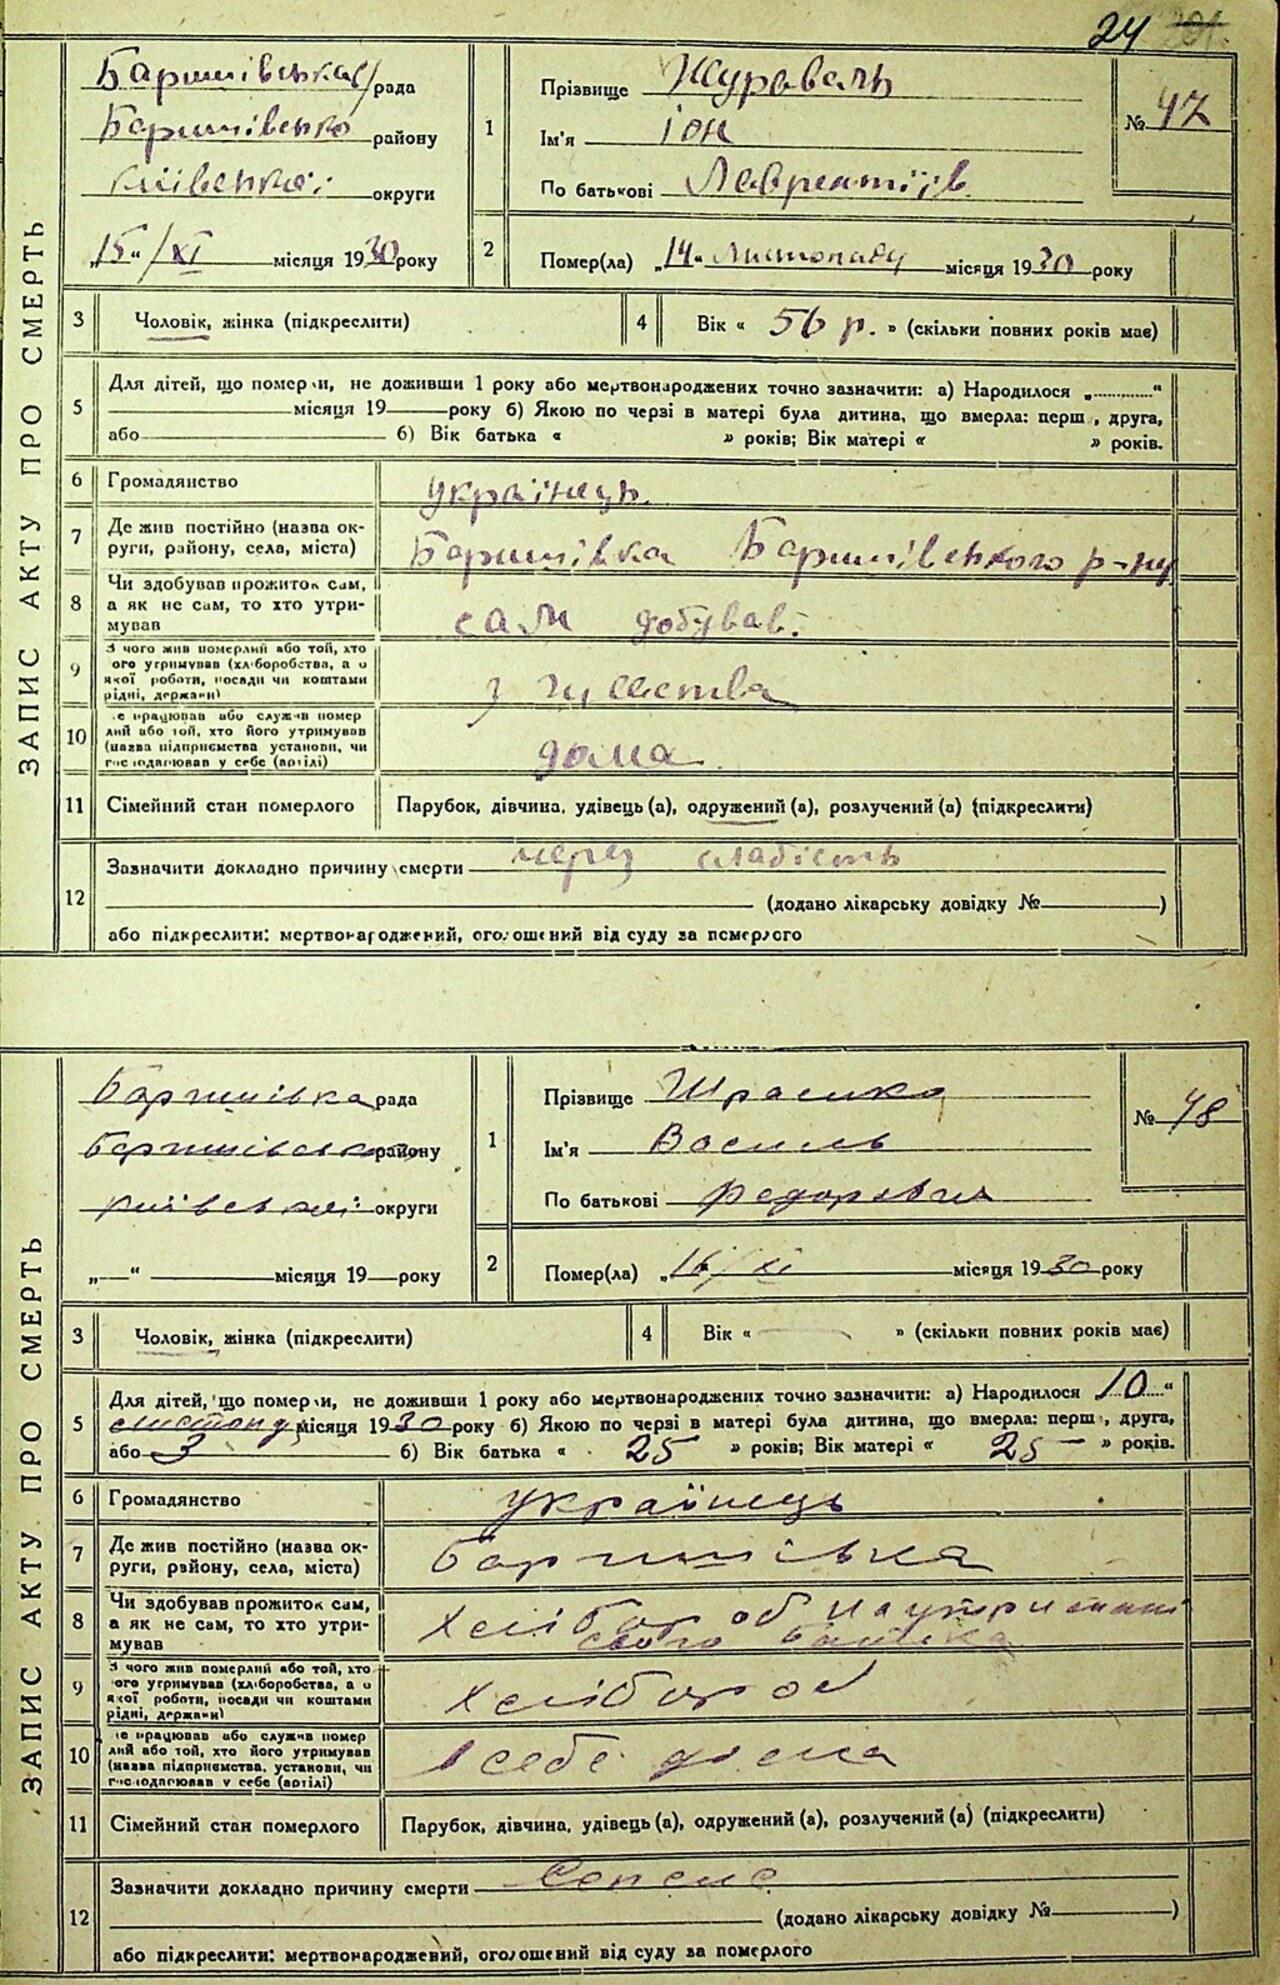 24
ЗАПИС АКТУ ПРО СМЕРТЬ
Баришівська рада
Баришівсько району
Київської округи
„15“/XI місяця 1930 року
1
Прізвище Журавель
Ім'я Іон
По батькові Лаврентіїв
№ 47
2
Помер(ла) „14“ Листопаду місяця 1930 року
3 Чоловік, жінка (підкреслити)
4 Вік « 56 р. » (скільки повних років має)
5
Для дітей, що померли, не доживши 1 року або мертвонароджених точно зазначити: а) Народилося „..........“
місяця 19 року б) Якою по черзі в матері була дитина, що вмерла: перш, друга,
або б) Вік батька « » років; Вік матері « » років.
6 Громадянство українець.
7 Де жив постійно (назва ок-
руги, району, села, міста) Баришівка Баришівенкого р-ну
8 Чи здобував прожиток сам,
а як не сам, то хто утри-
мував сам добував.
9 З чого жив померлий або той, хто
ого утримував (хліборобства, а о
якої роботи, посади чи коштами
рідні, держави) з
10 е працював або служив помер
лий або той, хто його утримував
(назва підприємства установи, чи
господарював у себе (артілі) дома.
11 Сімейний стан померлого Парубок, дівчина, удівець (а), одружений (а), розлучений (а) (підкреслити)
12
Зазначити докладно причину смерти через слабість
(додано лікарську довідку № )
або підкреслити: мертвонароджений, оголошений від суду за померлого
ЗАПИС АКТУ ПРО СМЕРТЬ
Баришівка рада
Баришівсько району
Київської округи
„—“ місяця 19 — року
1
Прізвище
Ім'я Василь
По батькові Федорович
№ 48
2
Помер(ла) „16/XI місяця 1930 року
3 Чоловік, жінка (підкреслити)
4 Вік « — » (скільки повних років має)
5
Для дітей, що померли, не доживши 1 року або мертвонароджених точно зазначити: а) Народилося 10 “
листопду місяця 1930 року б) Якою по черзі в матері була дитина, що вмерла: перш, друга,
або 3 б) Вік батька « 25 » років; Вік матері « 25 » років.
6 Громадянство українець
7 Де жив постійно (назва ок-
руги, району, села, міста) Баришівка
8 Чи здобував прожиток сам,
а як не сам, то хто утри-
мував Хлібороб на утриманні
свого батька
9 З чого жив померлий або той, хто
ого утримував (хліборобства, а о
якої роботи, посади чи коштами
рідні, держави) Хлібороб
10 е працював або служив помер
лий або той, хто його утримував
(назва підприємства, установи, чи
господарював у себе (артілі) в себе дома
11 Сімейний стан померлого Парубок, дівчина, удівець (а), одружений (а), розлучений (а) (підкреслити)
12
Зазначити докладно причину смерти Сепсис
(додано лікарську довідку № )
або підкреслити: мертвонароджений, оголошений від суду за померлого